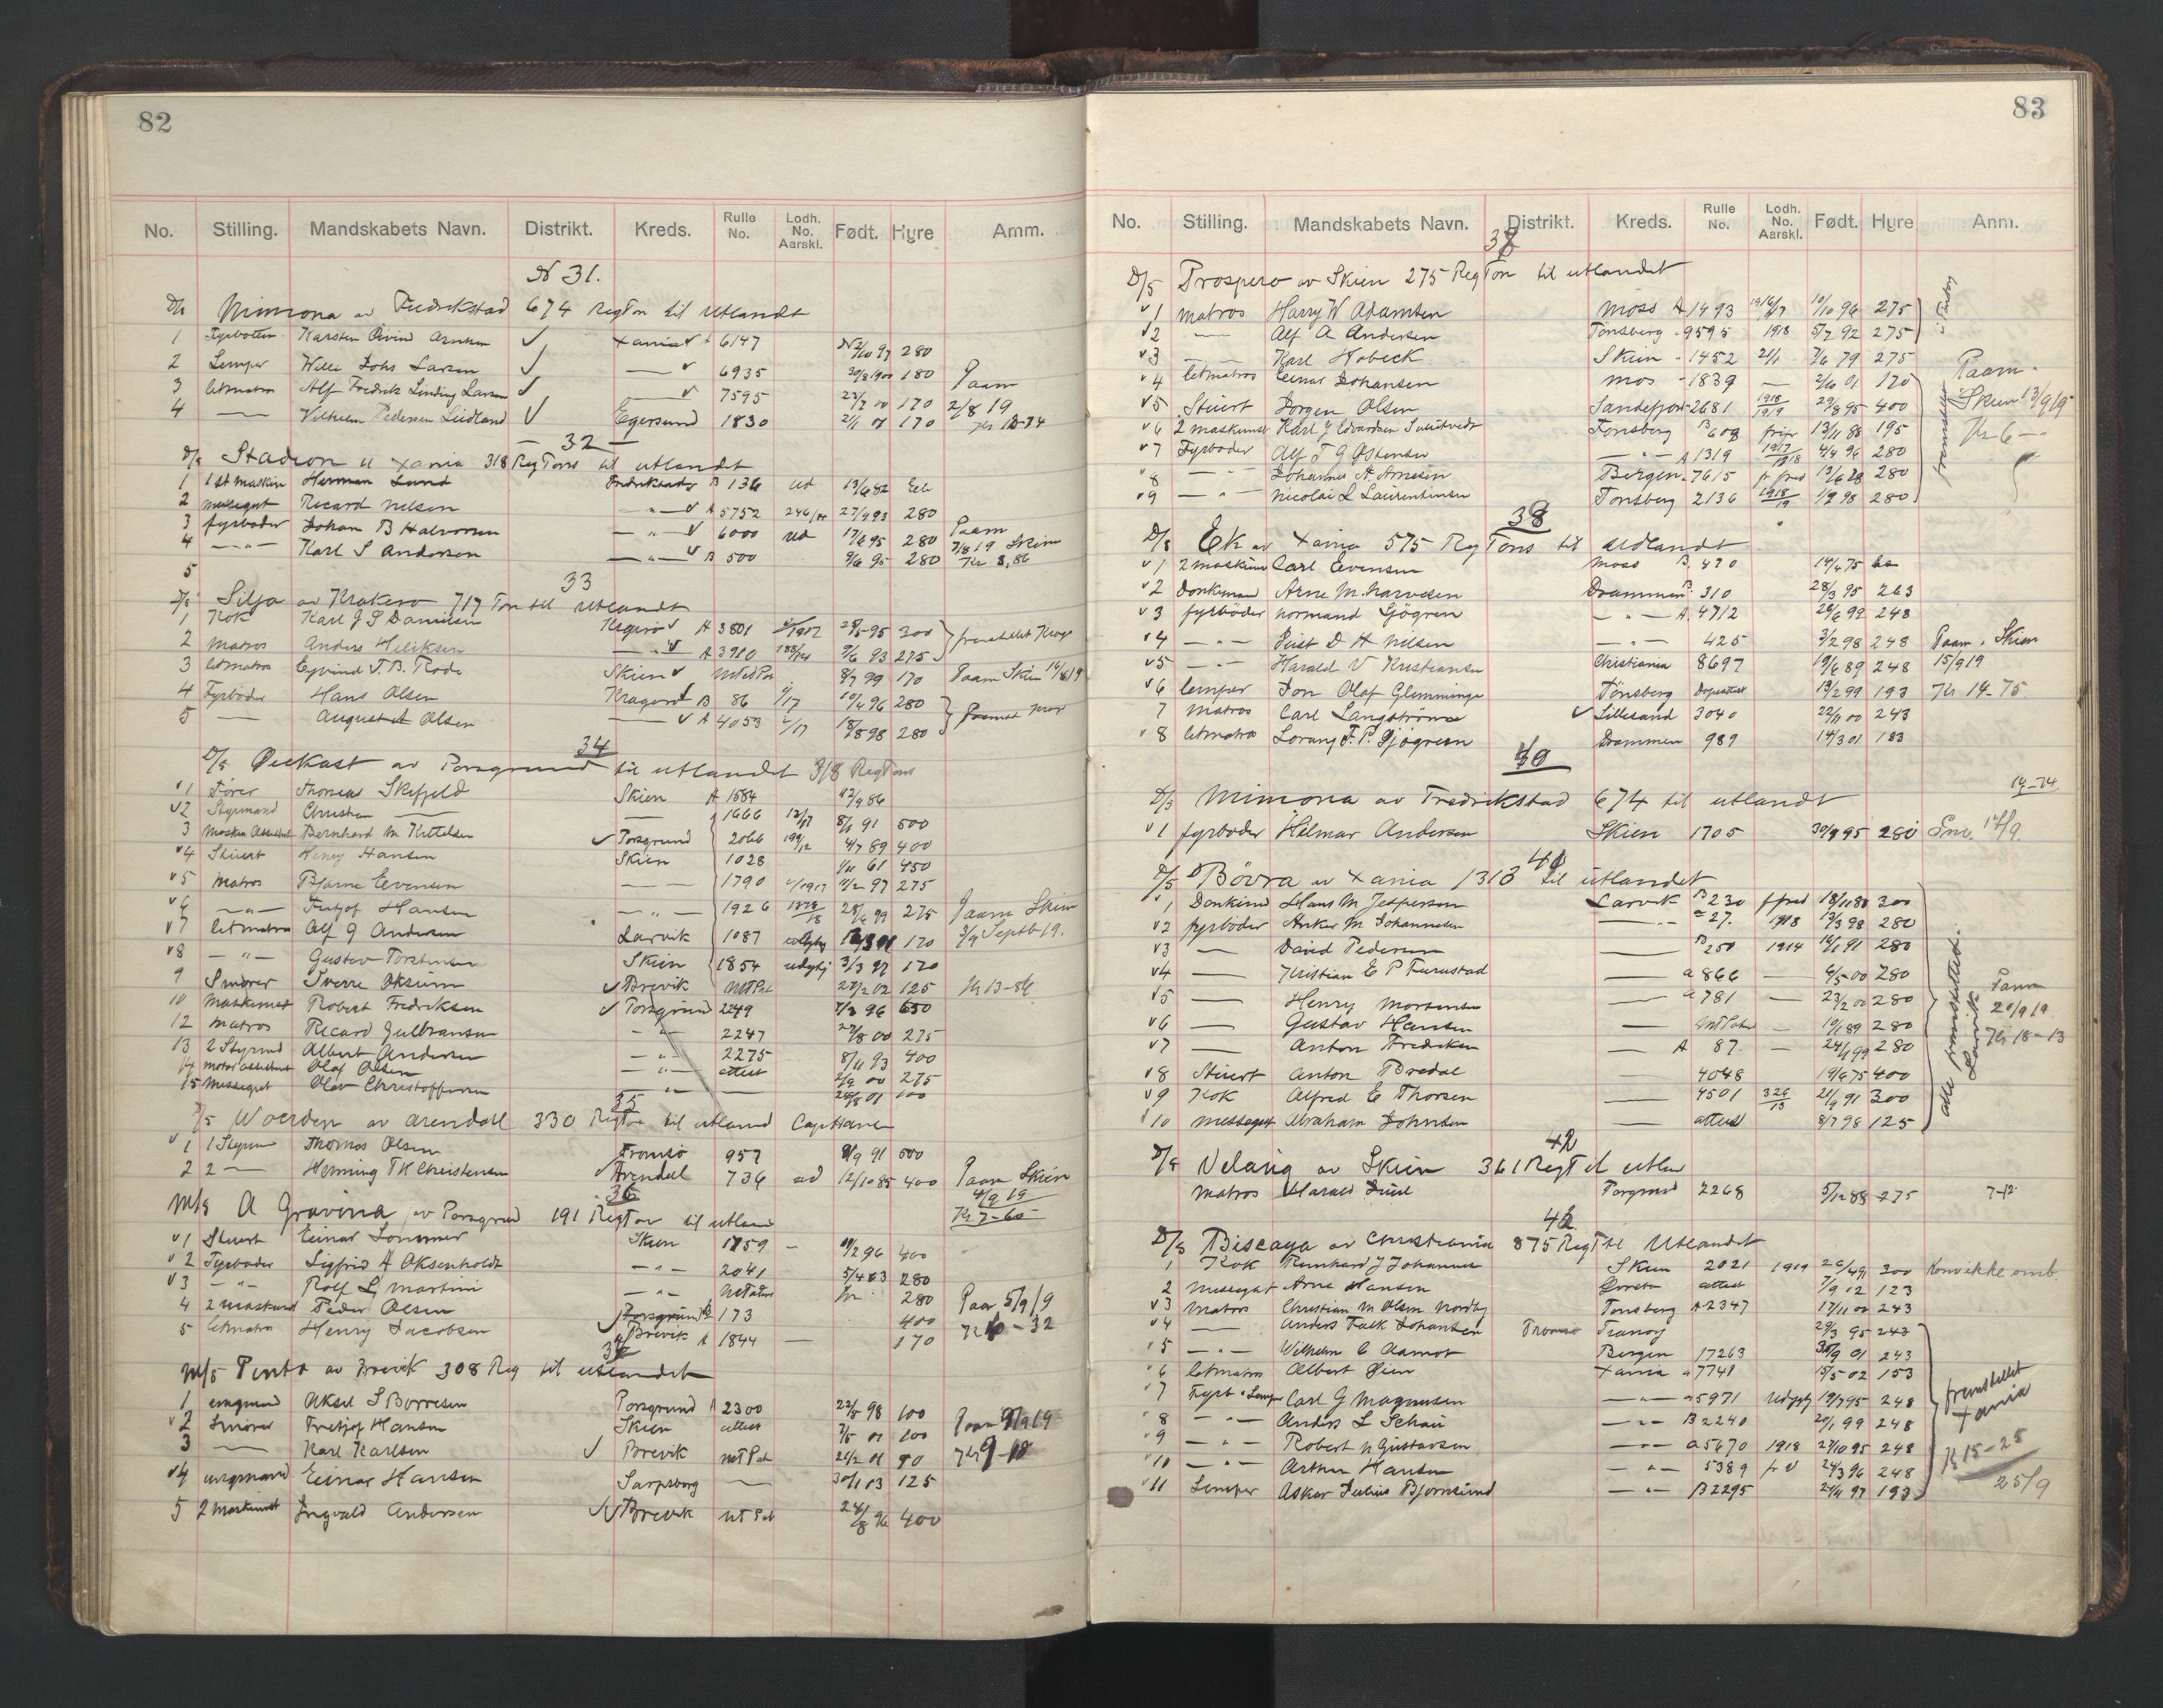 82
No. Stilling. Mandskabets Navn. Distrikt. Kreds. Rulle No. Lodh. No. Aarskl. Født. Hyre Amm.
N 31.
D/s Mimona av Fredrikstad 674 RegTon til Utlandt
1 Fyrbøtter Karsten Øivind ✓ Xania ✓ A 6147 97 280
2 Lemper Willi Johs Larsen ✓ —— ✓ 6935 30/8 1900 180 Paam
3 letmatros Alf Fredrik Larsen ✓ —— ✓ 7595 22/7 00 170 2/8 19
4 —— Vilhelm Pedersen Lidland ✓ Egersund 1830 2/1 01 170 Kr 12-74
— 32 —
D/s Stadion av Xania 318 RegTons til utlandt
1 1st maskin Herman Lund Fredrikstad B 136 ud 13/6 82
2 messegut Ricard Nelson —"— ✓ A 5752 27/9 93 280
3 fyrbøder Johan B Halvorsen —"— ✓ 6000 ud 17/6 95 280 Paam
4 —"— Karl S Andersen —"— ✓ B 500 9/6 95 280 7/8 19 Skien Kr 8,86
5
33
D/s Silja av Kragerø 717 Ton til Utlandt
1 Kok Karl J S Danielsen Kragerø ✓ A 3801 28/5-95 300
2 Matros Anders Heliksen —"— ✓ A 3910 9/6 93 275
3 letmatros Eyvind T.B. Rode Skien ✓ 8/7 99 170 Paam Skien
4 Fyrbøder Hans Olsen Kragerø B 86 10/4 96 280
5 —— August A Olsen —— ✓ A 4053 18/8 98 280
34
D/s Ørekast av Porsgrund til utlandet 318 RegTons
✓1 Fører Thomas Skifjeld Skien A 1584 12/9 86
✓2 Styrmand Christian —— —— 1666 8/1 91 500
3 Maskin Assistent Bernhard M Kittelsen ✓ Porsgrund 2066 199/12 4/7 89 400
✓4 Stuert Henry Hansen Skien 1028 1/11 61 450
✓5 Matros Bjarne Evensen —— 1790 97 275
✓6 —"— Fritjof Hansen —"— 1926 99 275 Paam Skien
✓7 letmatros Alf G Andersen Larvik 1087 01 170 3/9 Septb 19.
✓8 —"— Gustav Torstensen Skien 1854 3/3 97 170
9 Smører Sverre ✓ Brevik 27/2 02 125 Kr 13-86
10 Maskinist Robert Fredriksen ✓ Porsgrund 2249 7/3 96 650
12 Matros Ricard Gulbransen —"— 2247 27/8 00 275
13 2 Styrmd Albert Andersen —"— 2275 8/11 93 400
14 motor assistent Olaf Olsen —"— attest 2/9 00 275
15 Messegut Olav Christoffersen —"— —— 24/8 01 100
35
D/s Woerden av Arendall 330 RegTon til utland
✓1 1 Styrm Thomas Olsen Tromsø 957 8/9 91 500
2 2 —— Henning T K Christensen ✓ Arendal 736 ud 12/10 85 400 Paam Skien
36
4/9 19
M/s A Gravina av Porsgrund 191 RegTon til utland Kr 7-60
✓1 Stuert Einar Sommer Skien 1759 — 2 96 400
✓2 Fyrbøder Sigfrid A Oksenholdt —"— 2041 5/4 03 280
✓3 —"— Rolf L Martini —"— 280
4 2 maskinist Peder Olsen ✓ Porsgrund B 173 400 Paam 5/9 19
5 letmatros Henry Jacobsen ✓ Brevik A 1844 — 170 Kr 6-32
37
M/s Pinto av Brevik 308 Reg til utlandet
1 Aksel S Borresen Porsgrund 2300 22/5 98 100
✓2 Smører Fritjof Hansen Skien attest 7/5 01 100 Paam 9/9 19
3 —— Karl Karlsen ✓ Brevik 21/2 01 90 Kr 9-10
✓4 ungmand Einar Hansen Sarpsborg —— 30/1 03 125
5 2 Maskinist Ingvald Andersen ✓ Brevik 24/8 96 400
83
No. Stilling. Mandskabets Navn. Distrikt. Kreds. Rulle No. Lodh. No. Aarskl. Født. Hyre Anm.
38
D/s Prospero av Skien 275 RegTon til utlandet
✓1 matros Harry W Adamsen Moss A 1493 10/10 96 275
✓2 —— Alf A Andersen Tønsberg - 9595 1918 5/7 92 275
✓3 —"— Karl Hobeck Skien - 1452 21/1 7/6 79 275
✓4 letmatros Einar Johansen Mos - 1839 — 01 170 Paam.
✓5 Stuert Jorgen Olsen Sandefjord - 2681 1918/1919 29/8 95 400 Skien 13/9 19
✓6 2 maskinist Karl J Edvardsen Tønsberg B 608 13/11 88 195 Kr 6—
✓7 Fyrbøder Alf T G Østensen —"— A 1319 1917/1918 4/4 96 280 fremstillet
✓8 —"— Johannes A Arnesen Bergen. 7615 280
✓9 —"— Nicolai L Laurentinsen Tønsberg 2136 1918/19 98 280
38
D/s Ek av Xania 575 Reg Tons til Udlandt
✓1 2 maskinist Carl Evensen Moss B. 470 14/4 75
✓2 Donkemand Arne M. Narvesen Drammen B 310 28/3 95 263
✓3 fyrbøder Normand Sjögren —"— A. 4712 26/6 99 248
✓4 —"— D H Nilsen —"— 425 3/2 98 248 Paam. Skien
✓5 —"— Harald V Kristiansen Christiania 8697 19/6 89 248 15/9 19
✓6 lemper Jon Olaf Glemminge Tönsberg 13/2 99 193 Kr 14-75
7 Matros Carl Langströmsen ✓ Lillesand 3040 22/11 00 243
✓8 letmatros Lorang F. P. Sjögreen Drammen 989 14/3 01 183
40
D/s Mimona av Fredrikstad 674 til utlandt 14-74
✓1 fyrbøder Helmar Andersen Skien 1705 30/9 95 280 17/9
41
D/s Bövra av Xania 1313 til utlandet
✓1 Donkemd Hans M Jespersen Larvik B 230 18/11 80 300
✓2 fyrbøder Anker M Johannesen —"— 27. 1918 13/3 98 280
✓3 —— David Pedersen —— B 250 1914 91 280
✓4 —— Kristian E P Furustad —— a 866 — 6/5 00 280
✓5 —— Henry Mortensen —— a 781 — 23/2 00 280 Paam
✓6 —— Gustav Hansen —— — 10/1 89 280 20/9 19
✓7 —— Anton Fredriksen —— A 87. — 24/1 99 280 Kr 18-13
✓8 Stuert Anton Bredal —— 4048 19/6 75 400 alle fremstilled: Larvik
✓9 Kok Alfred E Thorsen —— 4501 326/13 21/9 91 300
✓10 messegut Abraham Johnsen —— attest 8/7 98 125
42
D/s Velaug av Skien 361 RegT til utlan
Matros Harald Juel Porgrund 2268 5/12 88 275 7-12
42
D/s Biscaya av Christiania 875 RegT til Utlandet
1 Kok Reinhard J Johannes Skien 2021 1914 91 300 Kom ikke omb.
2 messegut Arne Hansen attest 7/9 12 123
✓3 Matros Christian M Olsen Nordby Tønsberg A 2347 17/11 00 243
✓4 —— Anders Falk Johansen Tromsø Tranøy 29/3 95 243
✓5 —"— Wilhelm C Aamot Bergen 17263 30/9 01 243
✓6 letmatros Albert Xania a 7741 15/5 02 153
✓7 Fyrb. Lemper Carl G Magnusen —"— a 5971 19/7 95 248 fremstillet Xania
✓8 —"— Anders L Schau —"— B 2240 29/1 99 248
✓9 —"— Robert N Gustavsen —"— a 5670 1918 27/10 95 248 K 15-25
✓10 —"— Arthur Hansen —"— 5389 24/3 96 248
✓11 Lemper Askar Julius Bjørnsund —"— B 2295 24/4 97 193 25/9